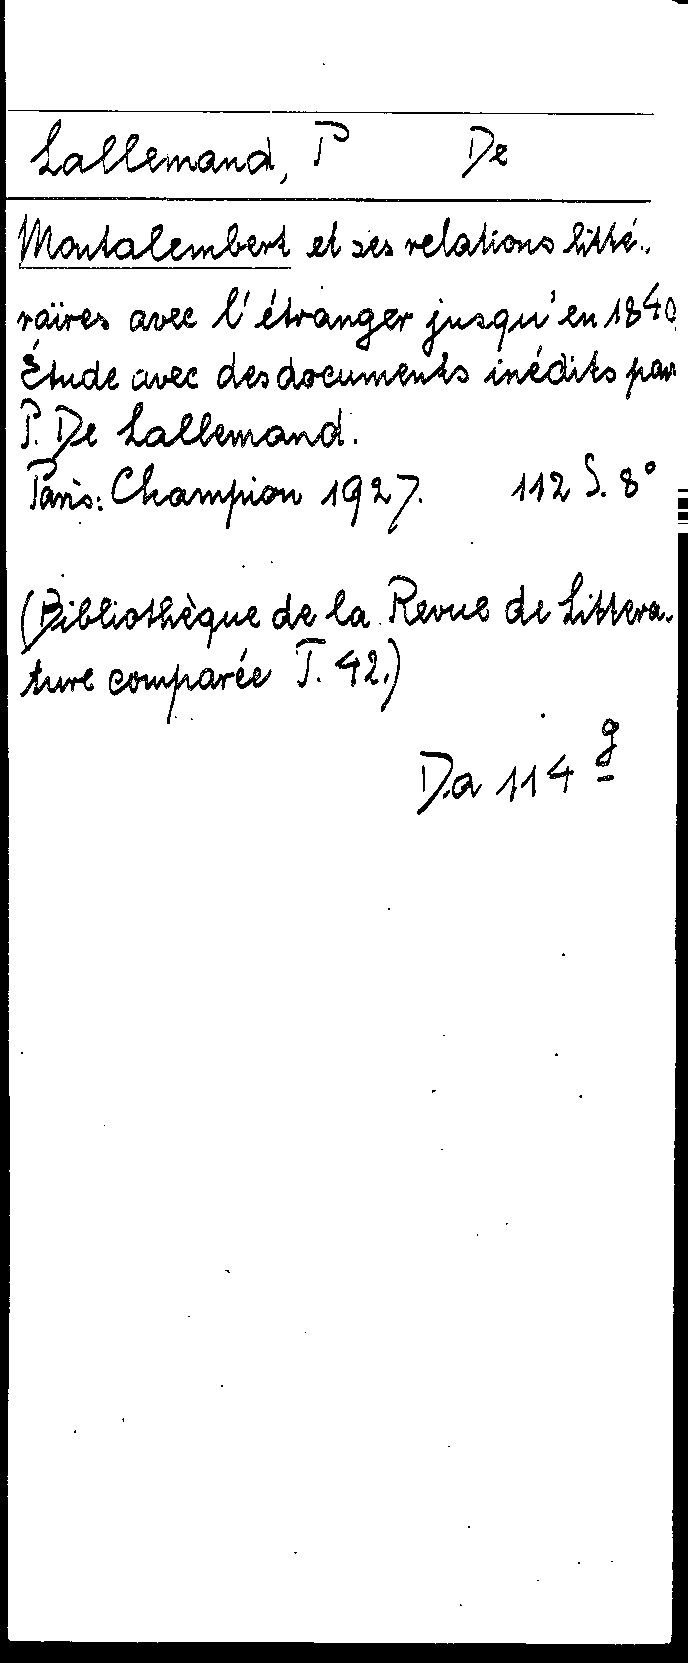 Lallemand, P De
Montalembert et ses relations litté-
raires avec l'étranger jusqu'en 1840
Étude avec des documents inédits par
P. De Lallemand.
Paris: Champion 1927. 112 S. 8°
(Bibliothèque de la Revue de Littera-
ture comparée T. 42.)
Da 114 g